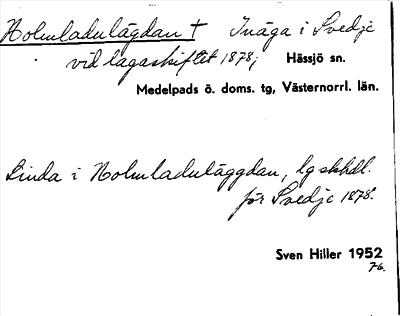 Holmladulägdan † Inäga i Svedje
vid lagaskiftet 1878; Hässjö sn.
Medelpads ö. doms. tg, Västernorrl. län.
Linda i Holmladuläggdan, lgskhdl.
för Svedje 1878.
Sven Hiller 1952
76.